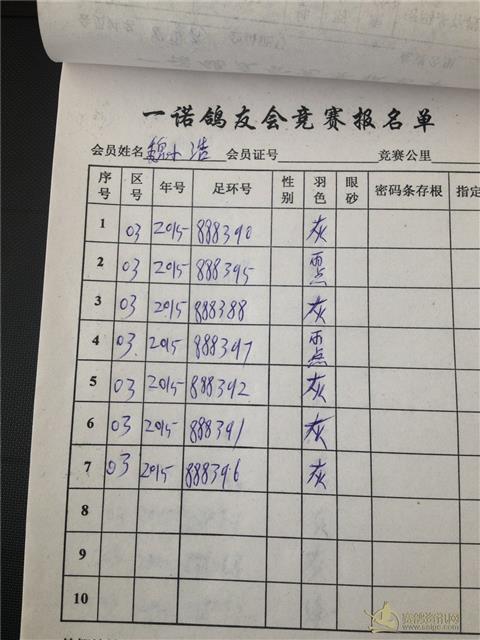 一诺鸽友会竞赛报名单
会员姓名 魏小浩 会员证号 竞赛公里
序号 区号 年号 足环号 性别 羽色 眼砂 密码条存根 指定
1 03 2015 888390 灰
2 03 2015 888395 雨点
3 03 2015 888388 灰
4 03 2015 888397 雨点
5 03 2015 888392 灰
6 03 2015 888391 灰
7 03 2015 888396 灰
8
9
10
赛鸽资讯网
www.snipc.com